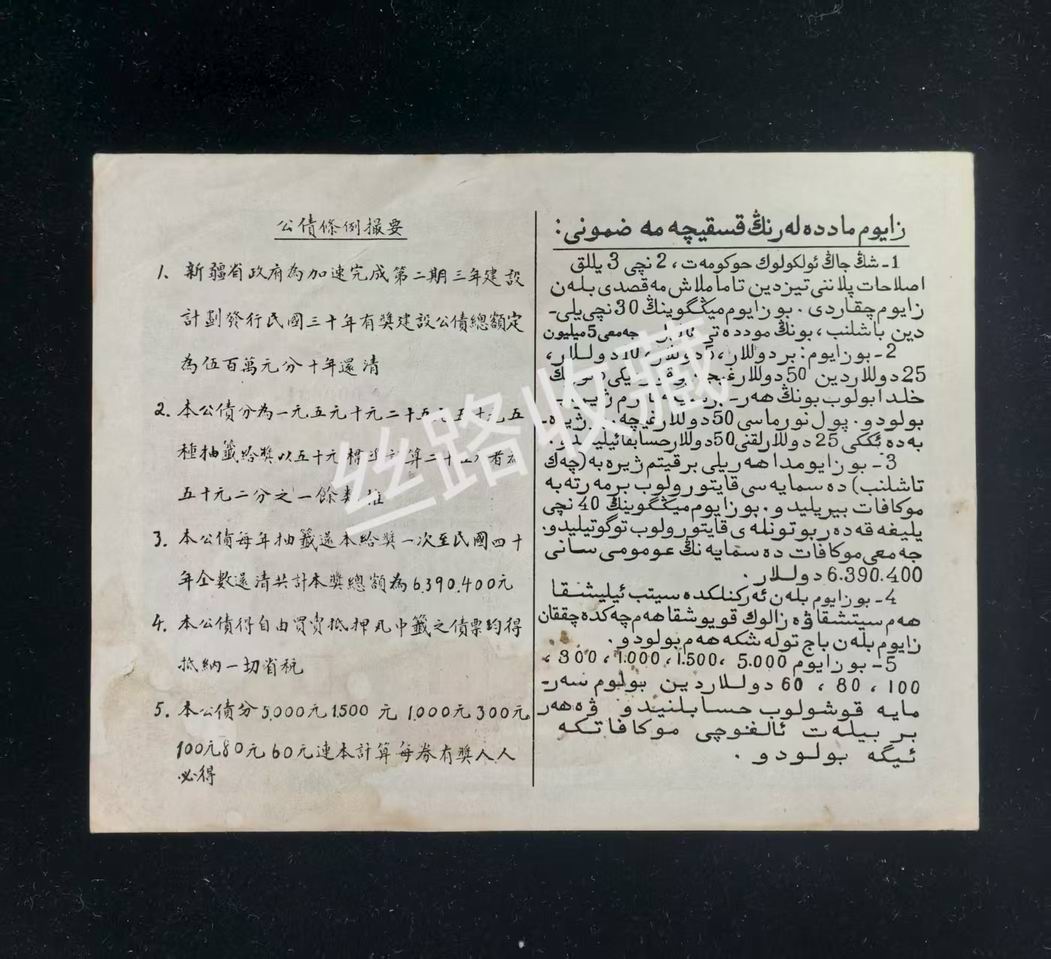 公債條例撮要
1. 新疆省政府為加速完成第二期三年建設
計劃發行民國三十年有獎建設公債總額定
為伍百萬元分十年還清
2. 本公債分為一元五元十元二十五元五十元五
種抽籤給獎以五十元 算二十五
五十元二分之一餘類推
3. 本公債每年抽籤還本給獎一次至民國四十
年全數還清共計本獎總額為6390.400元
4. 本公債得自由買賣抵押凡中籤之債票均得
抵納一切省稅
5. 本公債分5,000元1500元 1,000元300元
100元80元60元連本計算每券有獎人人
必得
زايوم ماددەلەرنڭ قسقيچە مەضمونى:
1- شڭ جاڭ ئولكولوك حوكومەت، 2 نچى 3 يللق
اصلاحات پلاننى تيزدين تاماملاش مەقصدى بلەن
زايوم چقاردى. بو زايوم ميڭگوينڭ 30 نچى يلى-
دين باشلنب، بونڭ موددەتى جەمعى 5 ميليون
2- بو زايوم: بر دوللار، 5 دوللار، 10 دوللار،
25 دوللاردين 50 دوللارغيچە
خلدا بولوب بونڭ هەر
بولودو. پول نورماسى 50 دوللارغيچە
بەدە ئككى 25 دوللارلقنى 50 دوللار حسابقا ئيليدو.
3- بو زايومدا هەر يلى بر قيتم ژيرەبە (چەك
تاشلنب) دەسمايەسى قايتورولوب بر مەرتەبە
موكافات بيريليدو. بو زايوم ميڭگوينڭ 40 نچى
يليغە قەدەر بوتونلەى قايتورولوب توگوتيليدو.
جەمعى موكافات دەسمايەنڭ عومومى سانى
6.390.400 دوللار.
4- بو زايوم بلەن ئەركنلكدە سيتب ئيليشقا
هەم سيتشقا ۋە زالوك قويوشقا هەم چەكدە چققان
زايوم بلەن باج تولەشكە هەم بولودو.
5- بو زايوم 5.000، 1.500، 1.000، 300،
100، 80، 60 دوللاردين بولوم سەر-
مايە قوشولوب حسابلنيدو ۋە هەر
بر بيلەت ئالغوچى موكافاتكە
ئيگە بولودو.
丝路收藏